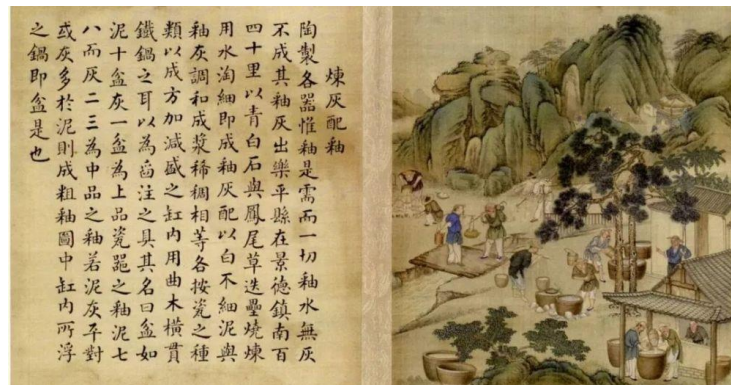 煉灰配釉
陶製各器惟釉是需而一切釉水無灰
不成其釉灰出樂平縣在景德鎮南百
四十里以青白石與鳳尾草迭壘燒煉
用水淘細即成釉灰配以白不細泥與
釉灰調和成漿稀稠相等各按瓷之種
類以成方加減盛之缸内用曲木橫貫
鐵鍋之耳以為舀注之具其名曰盆如
泥十盆灰一盆為上品瓷器之釉泥七
八而灰二三為中品之釉若泥灰平對
或灰多於泥則成粗釉圖中缸内所浮
之鍋即盆是也